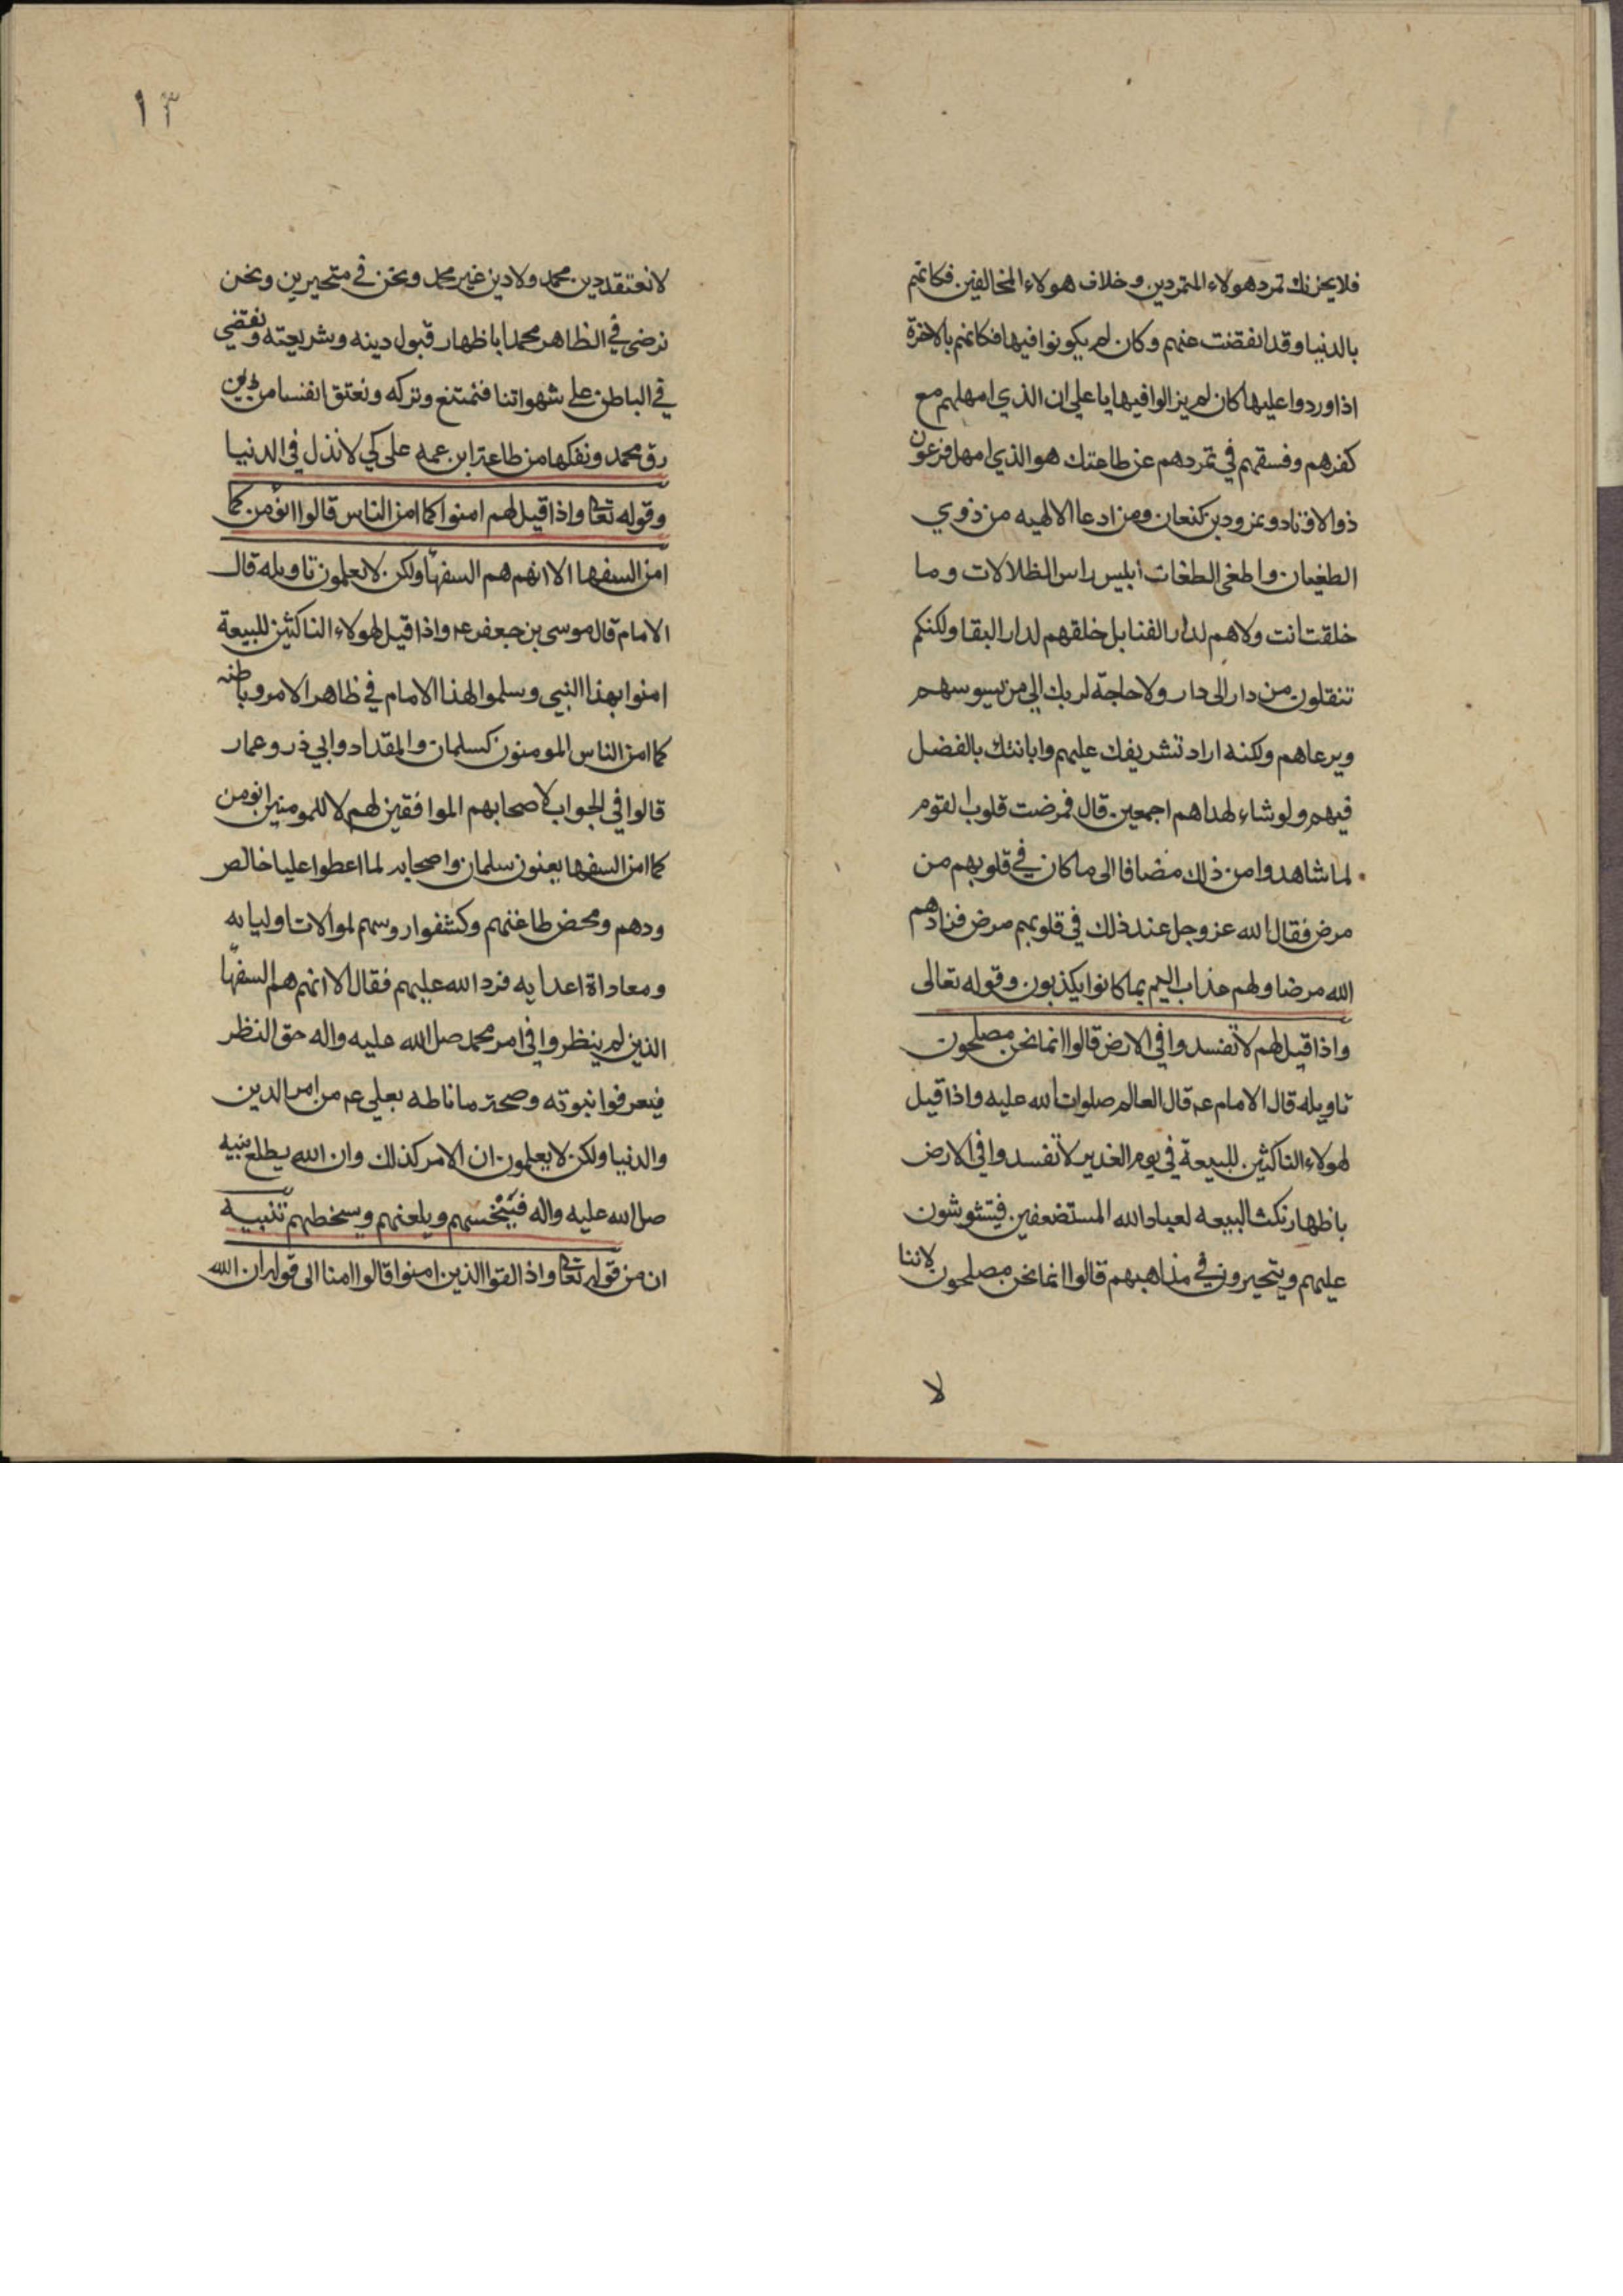 فلا يحزنك تمرد هولاء المتمردين وخلاف هولاء المخالفين فكانهم
بالدنيا وقد انقضت عنهم وكان لم يكونوا فيها فكانهم بالاخرة
اذا وردوا عليها كان لم يزالوا فيها يا علي ان الذي امهلهم مع
كفرهم وفسقهم في تمردهم عن طاعتك هو الذي امهل فرعون
ذوالاوتاد ونمرود بن كنعان ومن ادعا الالهيه من ذوي
الطغيان واطغى الطغات ابليس راس الظلالات وما
خلقت انت ولاهم لدار الفنا بل خلقهم لدار البقا ولكنكم
تنقلون من دار الى دار ولا حاجة لربك الى من يسوسهم
ويرعاهم ولكنه اراد تشريفك عليهم وابانتك بالفضل
فيهم ولو شاء لهداهم اجمعين قال فمرضت قلوب القوم
لما شاهدوا من ذلك مضافا الى ما كان في قلوبهم من
مرض فقال الله عز وجل عند ذلك في قلوبهم مرض فزادهم
الله مرضا ولهم عذاب اليم بما كانوا يكذبون وقوله تعالى
واذا قيل لهم لا تفسدوا في الارض قالوا انما نحن مصلحون
تاويله قال الامام عم قال العالم صلوات الله عليه واذا قيل
لهولاء الناكثين للبيعة في يوم الغدير لا تفسدوا في الارض
باظهار نكث البيعه لعباد الله المستضعفين فيتشوشون
عليهم ويتحيرون في مذاهبهم قالوا انما نحن مصلحون لاننا
لا
١٣
لا نعتقد دين محمد ولا دين غير محمد ونحن في متحيرين ونحن
نرضى في الظاهر محمدا باظهار قبول دينه وشريعته ونقضي
في الباطن على شهواتنا فنمتنع ونتركه ونعتق انفسنا من
رق محمد ونفكها من طاعة ابن عمه علي كي لا نذل في الدنيا
وقوله تعالى واذا قيل لهم امنوا كما امن الناس قالوا انؤمن كما
امن السفها الا انهم هم السفهآ ولكن لا يعلمون تاويله قال
الامام قال موسى بن جعفر عم واذا قيل لهولاء الناكثين للبيعة
امنوا بهذا النبي وسلموا لهذا الامام في ظاهر الامر وباطنه
كما امن الناس المومنون كسلمان والمقداد وابي ذر وعمار
قالوا في الجواب لاصحابهم الموافقين لهم لا للمومنين انومن
كما امن السفها يعنون سلمان واصحابه لما اعطوا عليا خالص
ودهم ومحض طاعتهم وكشفوا روسهم لموالات اوليايه
ومعاداة اعدايه فرد الله عليهم فقال الا انهم هم السفهآ
الذين لم ينظروا في امر محمد صل الله عليه واله حق النظر
فيعرفوا نبوته وصحة ما ناطه بعلي عم من امر الدين
والدنيا ولكن لا يعلمون ان الامر كذلك وان الله يطلع نبيه
صل الله عليه واله فيخسهم ويلعنهم وسخطهم تنبيه
ان من قوله تعالى واذا لقوا الذين امنوا قالوا امنا الى قوله ان الله